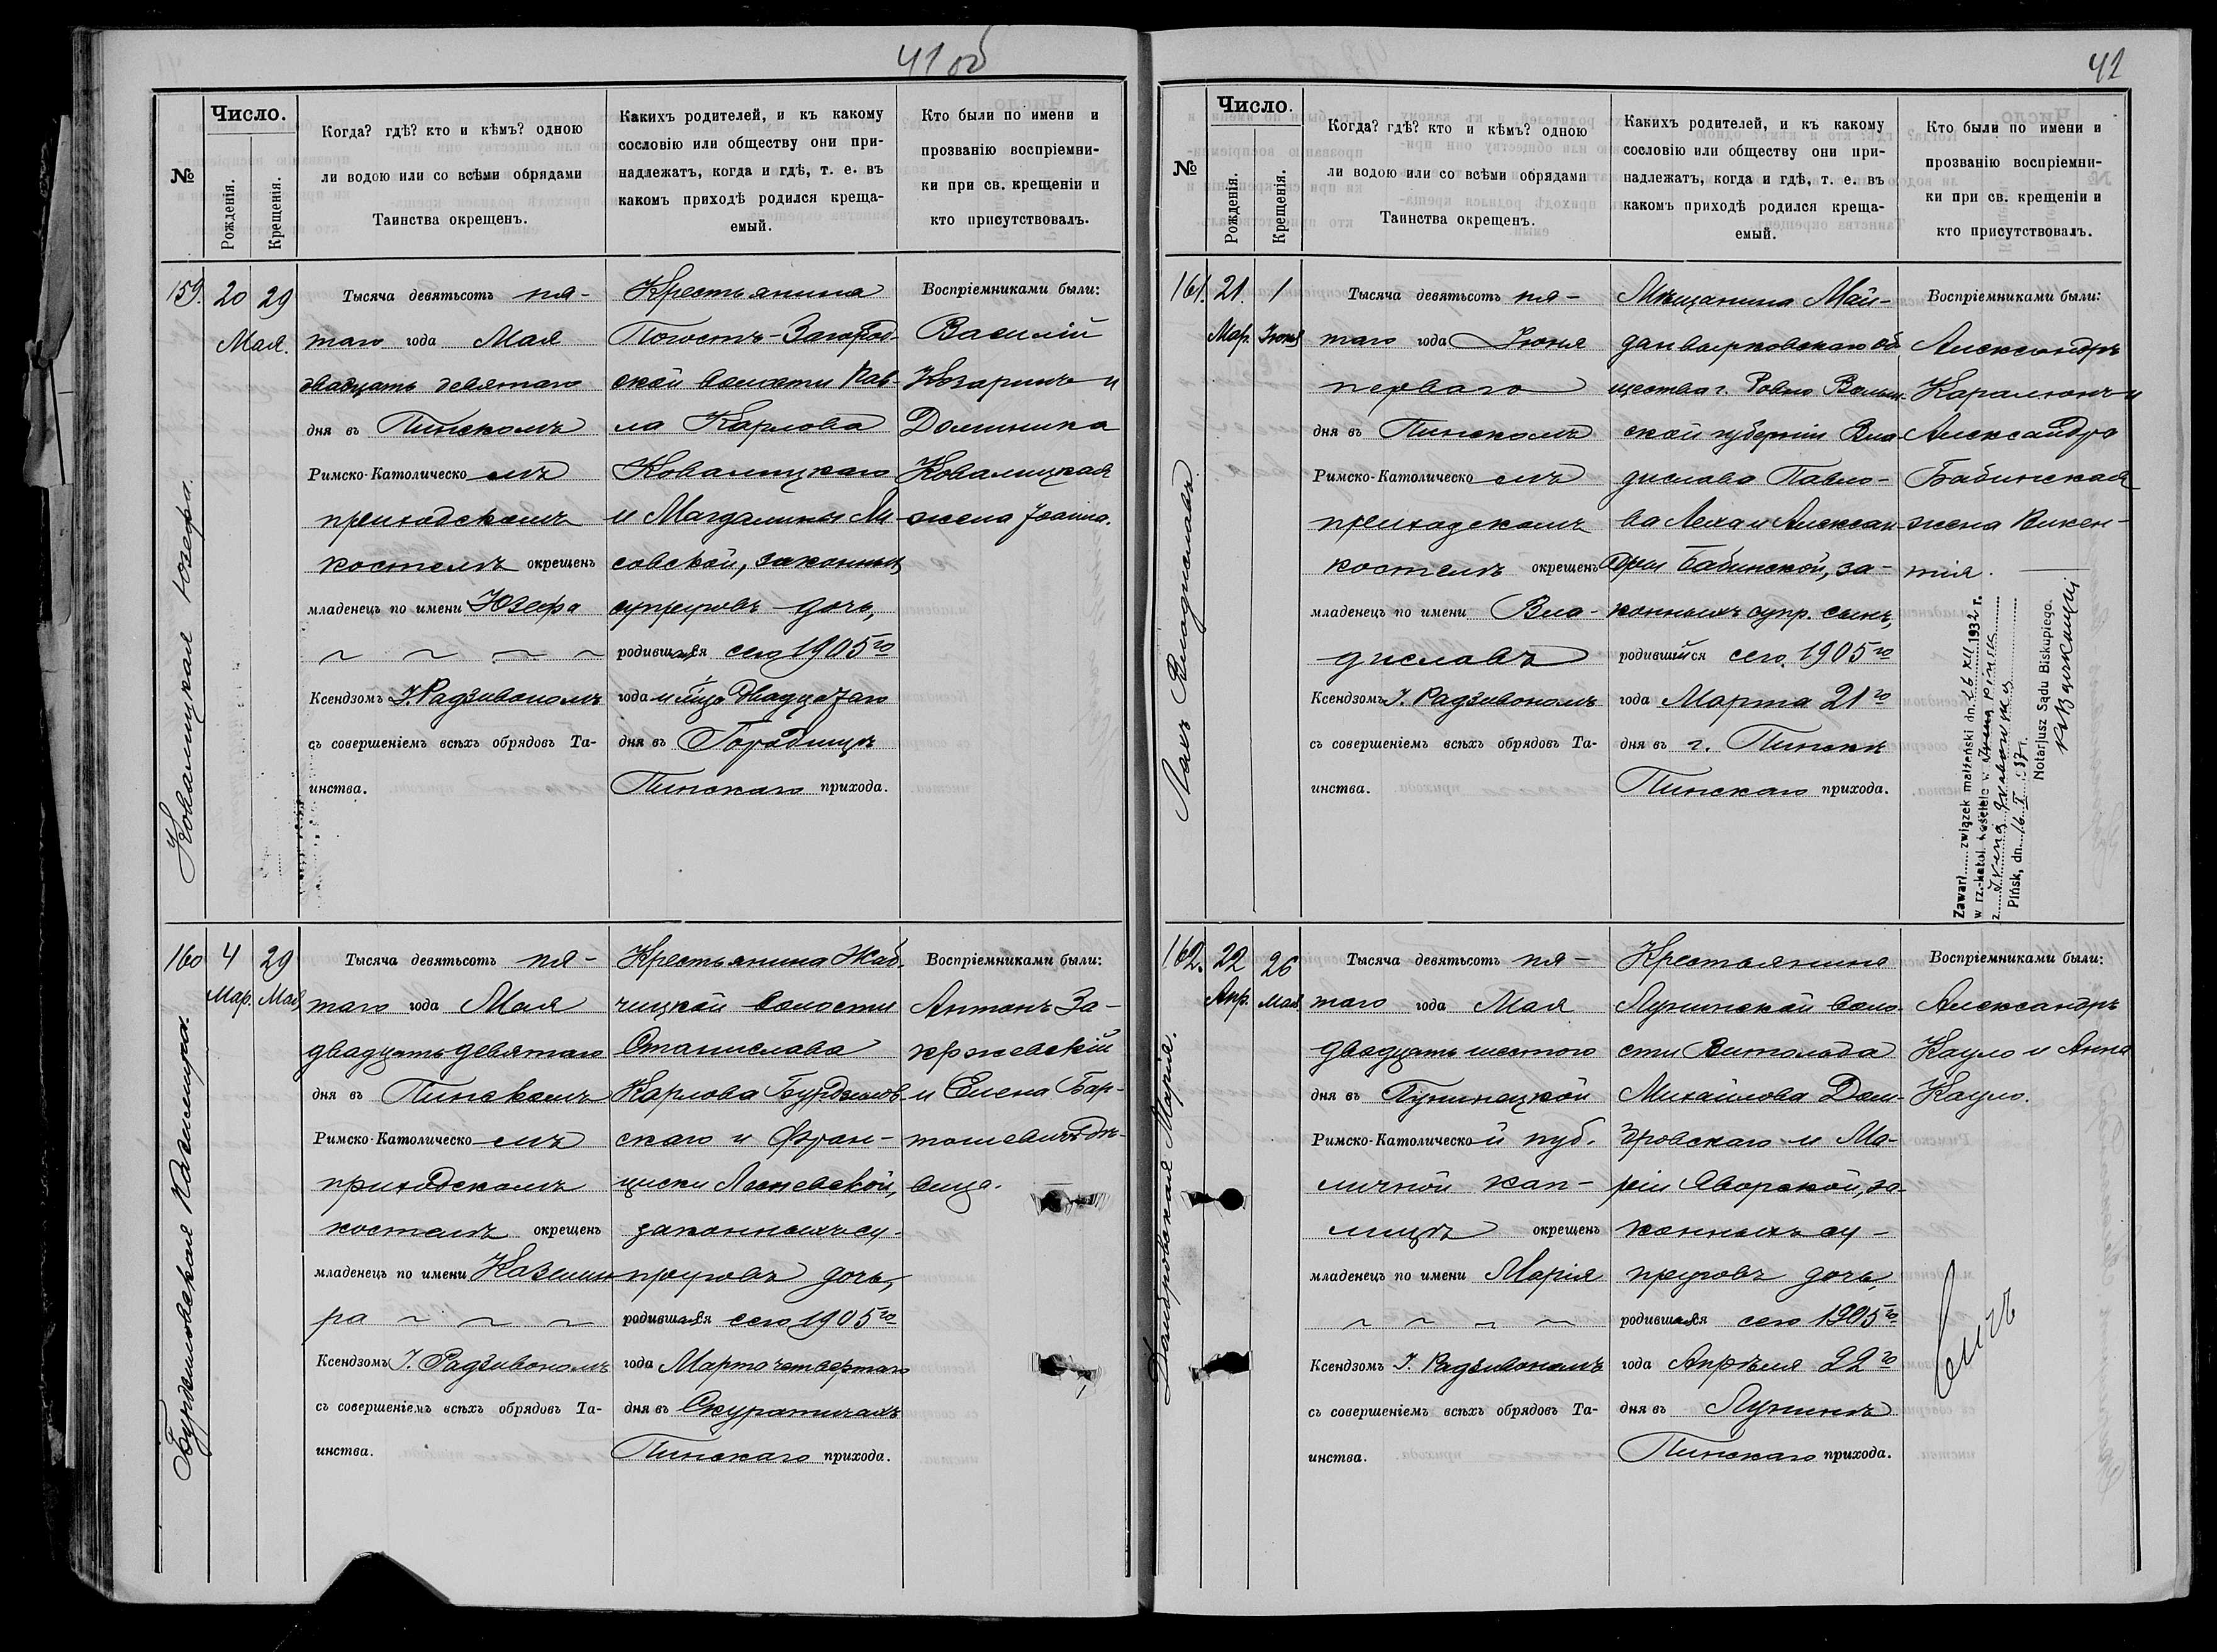 41 об
№
Число.
Рожденія.
Крещенія.
Когда? гдѣ? кто и кѣмъ? одною
ли водою или со всѣми обрядами
Таинства окрещенъ.
Какихъ родителей, и къ какому
сословію или обществу они при-
надлежатъ, когда и гдѣ, т. е. въ
какомъ приходѣ родился креща-
емый.
Кто были по имени и
прозванію воспріемни-
ки при св. крещеніи и
кто присутствовалъ.
159.
Ковалицкая Юзефа.
20
29
Мая.
Тысяча девятьсотъ пя-
таго года Мая
двадцать девятаго
дня въ Пинскомъ
Римско-Католическо мъ
приходскомъ
костелѣ окрещенъ
младенецъ по имени Юзефа
Ксендзомъ І. Радзивономъ
съ совершеніемъ всѣхъ обрядовъ Та-
инства.
Крестьянина
Погостъ-Загород-
ской волости Пав-
ла Карлова
Ковалицкаго
и Магдалины Ли-
совской, законныхъ
супруговъ дочь,
родившаяся сего 1905го
года Мая двадцатаго
дня въ Городищѣ
Пинскаго прихода.
Воспріемниками были:
Василій
Козаринъ и
Доминика
Ковалицкая
жена Іоанна.
160
Бурдзиловская Казимира.
4
Мар.
29
Мая
Тысяча девятьсотъ пя-
таго года Мая
двадцать девятаго
дня въ Пинскомъ
Римско-Католическо мъ
приходскомъ
костелѣ окрещенъ
младенецъ по имени Казими
ра
Ксендзомъ І. Радзивономъ
съ совершеніемъ всѣхъ обрядовъ Та-
инства.
Крестьянина Жаб-
чицкой волости
Станислава
Карлова Бурдзилов-
скаго и Фран-
циски Лисневской,
законныхъ су-
пруговъ дочь,
родившаяся сего 1905го
года Марта четвертаго
дня въ Скуратичахъ
Пинскаго прихода.
Воспріемниками были:
Антонъ За-
кржевскій
и Елена Бар-
тошевичъ дѣ-
вица.
42
№
Число.
Рожденія.
Крещенія.
Когда? гдѣ? кто и кѣмъ? одною
ли водою или со всѣми обрядами
Таинства окрещенъ.
Какихъ родителей, и къ какому
сословію или обществу они при-
надлежатъ, когда и гдѣ, т. е. въ
какомъ приходѣ родился креща-
емый.
Кто были по имени и
прозванію воспріемни-
ки при св. крещеніи и
кто присутствовалъ.
161.
Лахъ Владиславъ.
21.
Мар.
1
Іюня
Тысяча девятьсотъ пя-
таго года Іюня
перваго
дня въ Пинскомъ
Римско-Католическо мъ
приходскомъ
костелѣ окрещенъ
младенецъ по имени Вла-
диславъ
Ксендзомъ І. Радзивономъ
съ совершеніемъ всѣхъ обрядовъ Та-
инства.
Мѣщанина Май-
данвырковскаго об-
щества г. Ровно Волын-
ской губерніи Вла-
дислава Павло-
ва Леха и Алексан-
дры Бабинской, за-
конныхъ супр. сынъ,
родившійся сего 1905го
года Марта 21го
дня въ г. Пинскѣ
Пинскаго прихода.
Воспріемниками были:
Александръ
Каралюнъ и
Александра
Бабинская
жена Викен-
тія.
Zawarł związek małżeński dn. 26 XII 1932 r.
w rz.-katol. kościele w Pińsk
z Ireną
Pińsk, dn. 16 I 37 r.
Notarjusz Sądu Biskupiego.
162.
Домбровская Марія.
22
Апр.
26
Мая
Тысяча девятьсотъ пя-
таго года Мая
двадцать шестого
дня въ Лунинецкой
Римско-Католической пуб-
личной кап-
лицѣ окрещенъ
младенецъ по имени Марія
Ксендзомъ І. Радзивономъ
съ совершеніемъ всѣхъ обрядовъ Та-
инства.
Крестьянина
Лунинской воло-
сти Витольда
Михайлова Дом-
бровскаго и Ма-
ріи Яворской, за-
конныхъ су-
пруговъ дочь,
родившаяся сего 1905го
года Апрѣля 22го
дня въ Лунинѣ
Пинскаго прихода.
Воспріемниками были:
Александръ
Кауло и Анна
Кауло.